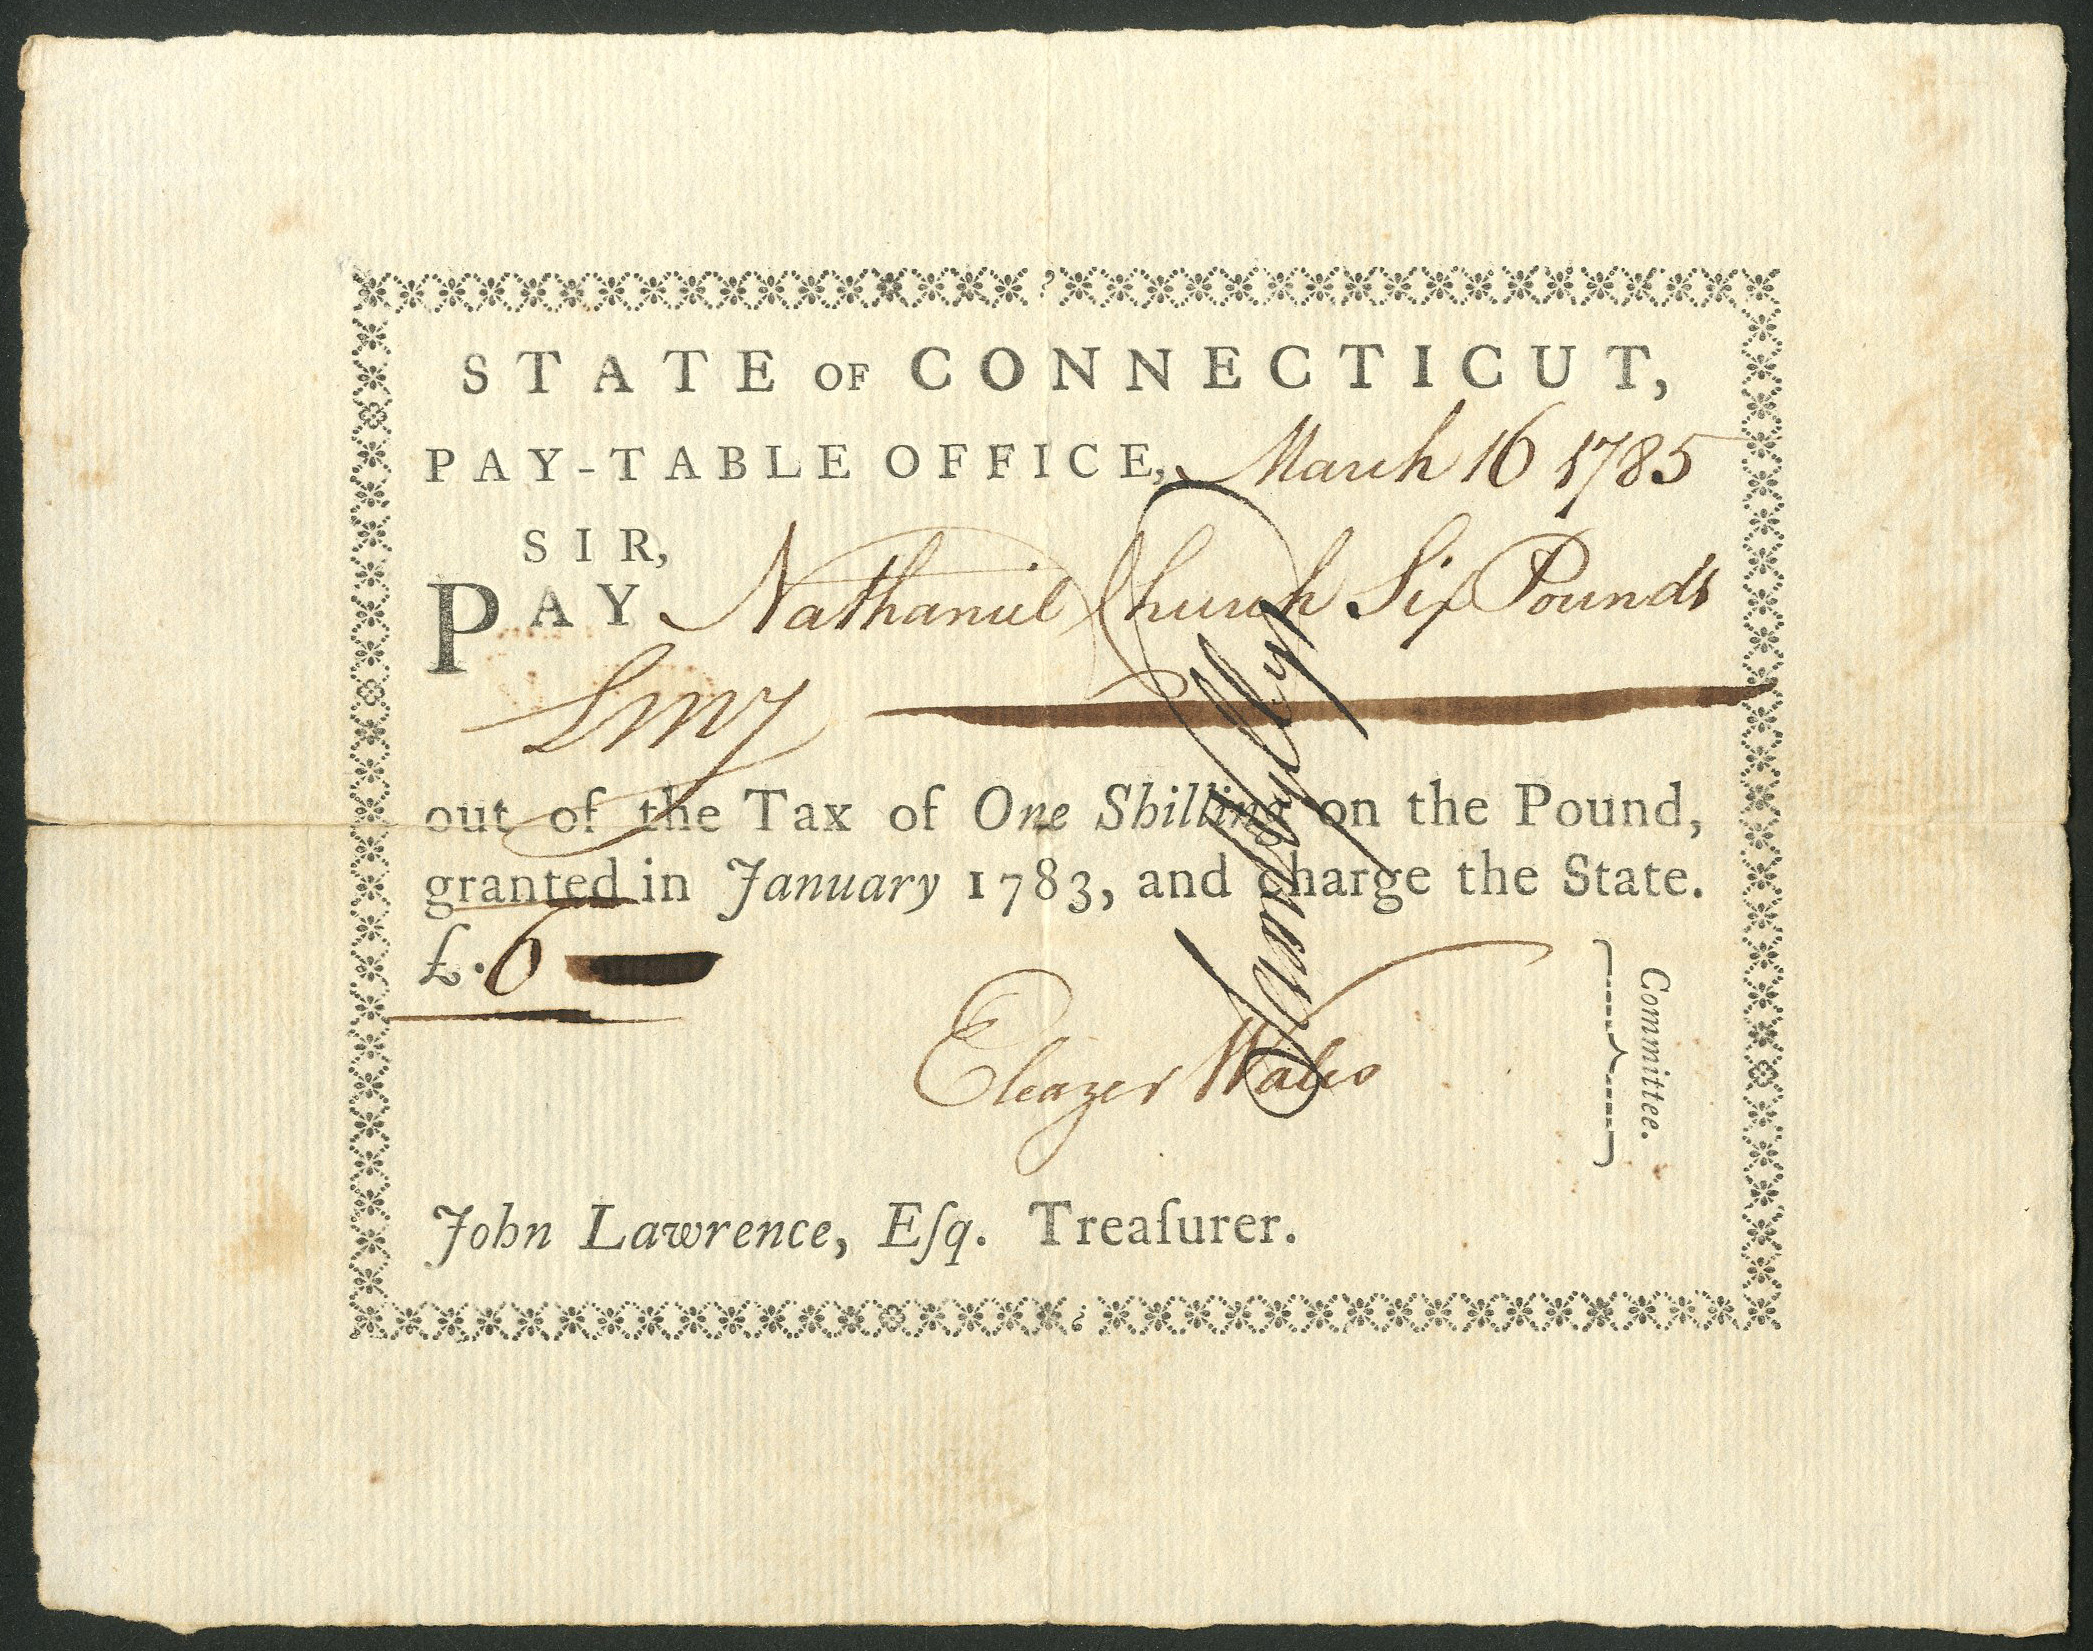 STATE OF CONNECTICUT,
PAY-TABLE OFFICE, March 16 1785
SIR,
PAY Nathaniel Church Six Pounds
LMy
out of the Tax of One Shilling on the Pound,
granted in January 1783, and charge the State.
£.6
Eleazer Wales
Committee.
Sam Wyllys
John Lawrence, Eſq. Treaſurer.